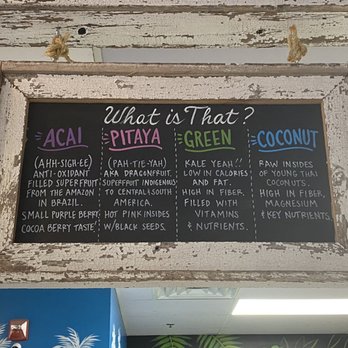 What is That?
ACAI
(AHH-SIGH-EE)
ANTI-OXIDANT
FILLED SUPERFRUIT
FROM THE AMAZON
IN BRAZIL.
SMALL PURPLE BERRY,
COCOA BERRY TASTE!
PITAYA
(PAH-TIE-YAH)
AKA DRAGONFRUIT,
SUPERFRUIT INDIGENOUS
TO CENTRAL & SOUTH
AMERICA.
HOT PINK INSIDES
W/BLACK SEEDS.
GREEN
KALE YEAH!!
LOW IN CALORIES
AND FAT.
HIGH IN FIBER,
FILLED WITH
VITAMINS
& NUTRIENTS.
COCONUT
RAW INSIDES
OF YOUNG THAI
COCONUTS.
HIGH IN FIBER,
MAGNESIUM
& KEY NUTRIENTS.